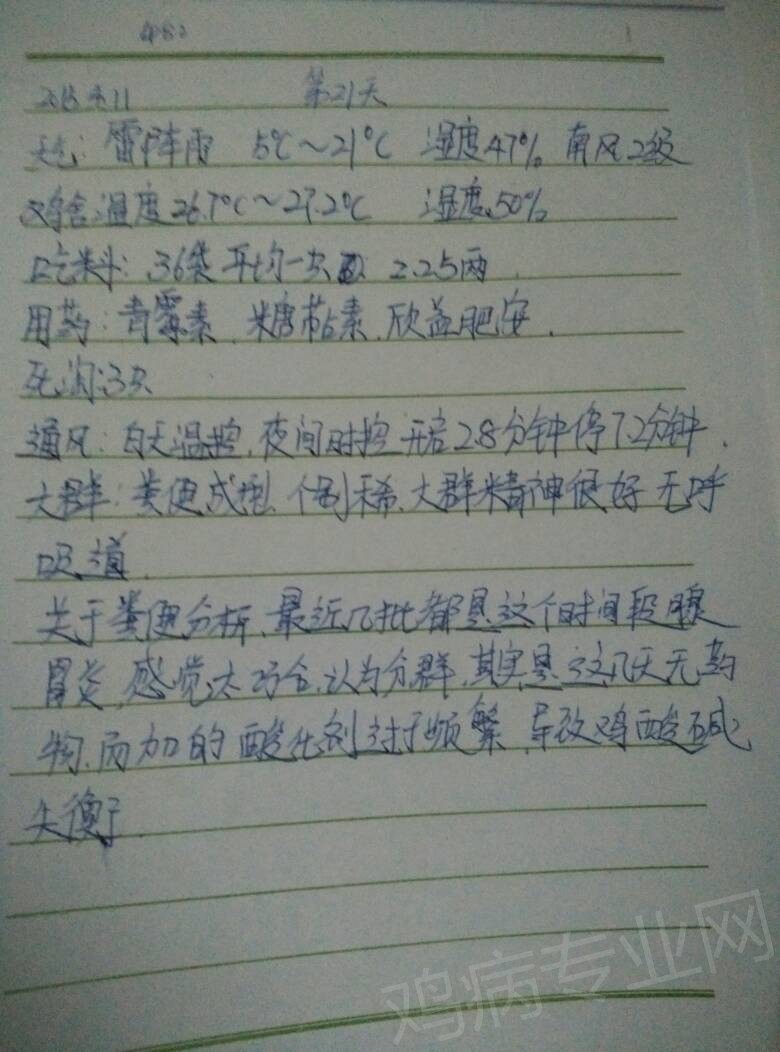 第21天
天气: 雷阵雨 5℃~21℃ 湿度47% 南风2级
鸡舍温度26.7℃~27.2℃ 湿度50%
吃料: 36袋 平均一只 2.25两
用药: 青霉素、糖萜素、欣益肥安.
死淘: 3只
通风: 白天温控, 夜间时控 开启2.8分钟停7.2分钟.
大群: 粪便成型、个别稀、大群精神很好 无呼
吸道.
关于粪便分析、最近几批都是这个时间段腺
胃炎, 感觉太巧合, 认为分群, 其实是这几天无药
物, 而加的酸化剂过于频繁, 导致鸡酸碱
失衡了.
鸡病专业网